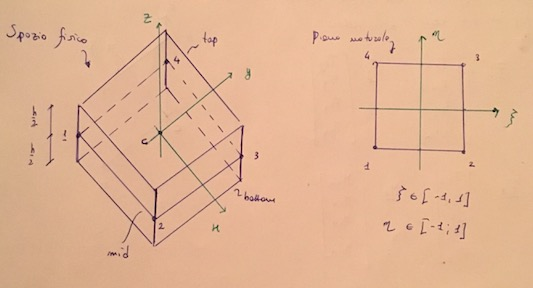 Spazio fisico
z
top
4
y
h/2
1
c
h/2
3
bottom
2
x
mid
Piano naturale
η
4
3
ξ
1
2
ξ ∈ [-1, 1]
η ∈ [-1; 1]